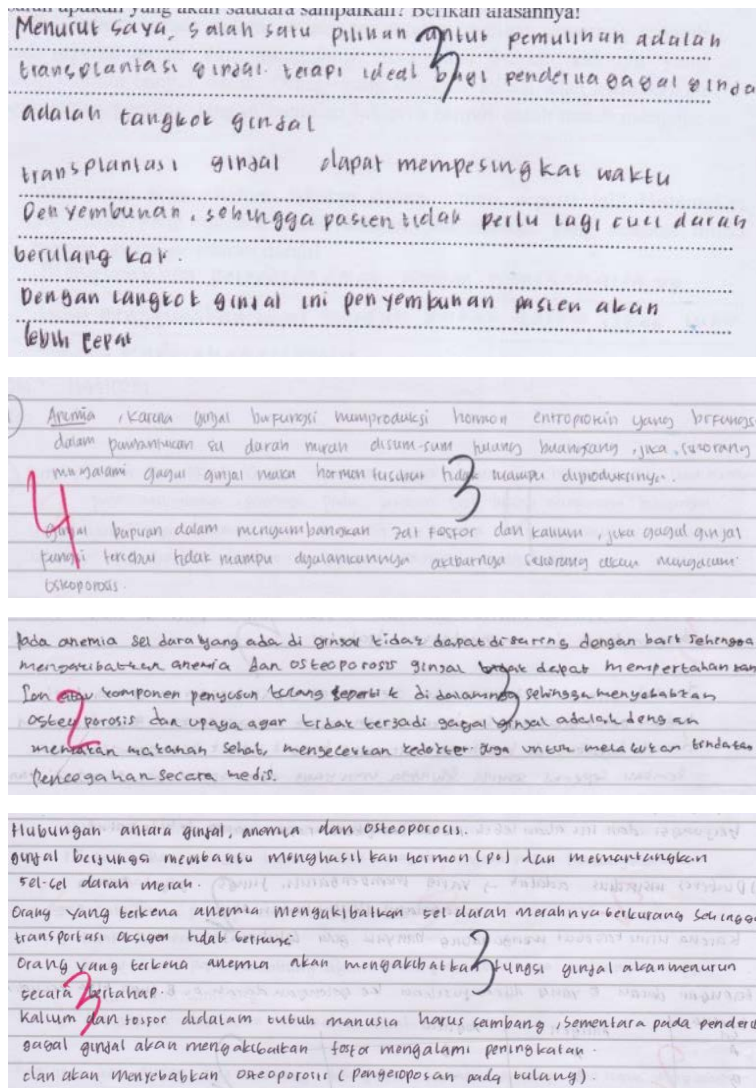 apakah yang akan saudara sampaikan? Berikan alasannya!
Menurut saya, salah satu pilihan untuk pemulihan adalah
transplantasi ginjal. terapi ideal bagi penderita gagal ginja
adalah cangkok ginjal
transplantasi ginjal dapat mempesingkat waktu
Penyembuhan, sehingga pasien tidak perlu lagi cuci darah
berulang kali.
Dengan cangkok ginjal ini penyembuhan pasien akan
lebih cepat
3
Anemia, karena ginjal berfungsi memproduksi hormon entropoietin yang berfungs
dalam pembentukan sel darah merah disum-sum tulang belakang, jika seseorang
mengalami gagal ginjal maka hormon tersebut tidak mampu diproduksinya.
4 3
ginjal berperan dalam menyeimbangkan zat fosfor dan kalium, jika gagal ginjal
fungsi tersebut tidak mampu dijalankannya akibatnya seseorang akan mengalami
Oskoporosis.
Pada anemia sel darah yang ada di ginjal tidak dapat disaring dengan baik sehingga
mengakibatkan anemia dan osteoporosis ginjal tidak dapat mempertahankan
Ion atau komponen penyusun tulang seperti k di dalamnya sehingga menyebabkan
osteoporosis dan upaya agar tidak terjadi gagal ginjal adalah dengan
2 3
memakan makanan sehat, mengecekkan kedokter juga untuk melakukan tindakan
Pencegahan secara medis.
Hubungan antara ginjal, anemia dan osteoporosis.
ginjal berfungsi membantu menghasilkan hormon (po) dan mematangkan
sel-sel darah merah.
Orang yang terkena anemia mengakibatkan sel darah merahnya berkurang sehingga
transportasi oksigen tidak
Orang yang terkena anemia akan mengakibatkan fungsi ginjal akan menurun
secara bertahap.
3 3
Kalium dan fosfor didalam tubuh manusia harus seimbang, sementara pada penderi
gagal ginjal akan mengakibatkan fosfor mengalami peningkatan.
dan akan menyebabkan osteoporosis (pengeroposan pada tulang).